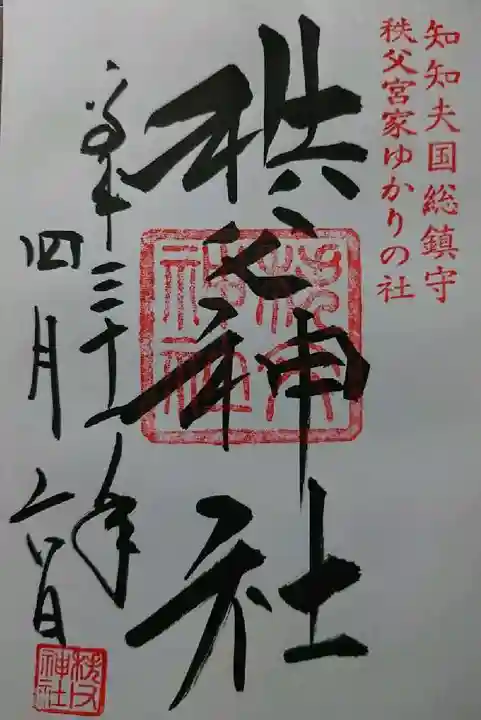 知知夫国総鎮守
秩父宮家ゆかりの社
秩父神社
平成三十一年
四月六日
秩父神社
秩父神社